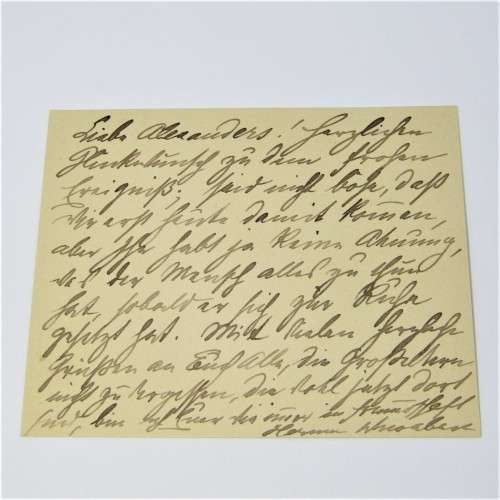 Liebe Alexanders! Herzlichen
Glückwunsch zu dem frohen
Ereigniß; seid nicht böse, daß
wir erst heute damit kommen,
aber Ihr habt ja keine Ahnung,
was der Mensch alles zu thun
hat, sobald er sich zur Ruhe
gesetzt hat. Mit vielen herzlichen
Grüßen an Euch Alle, die Großeltern
nicht zu vergessen, die wohl jetzt dort
sind, bin ich Euer wie immer in